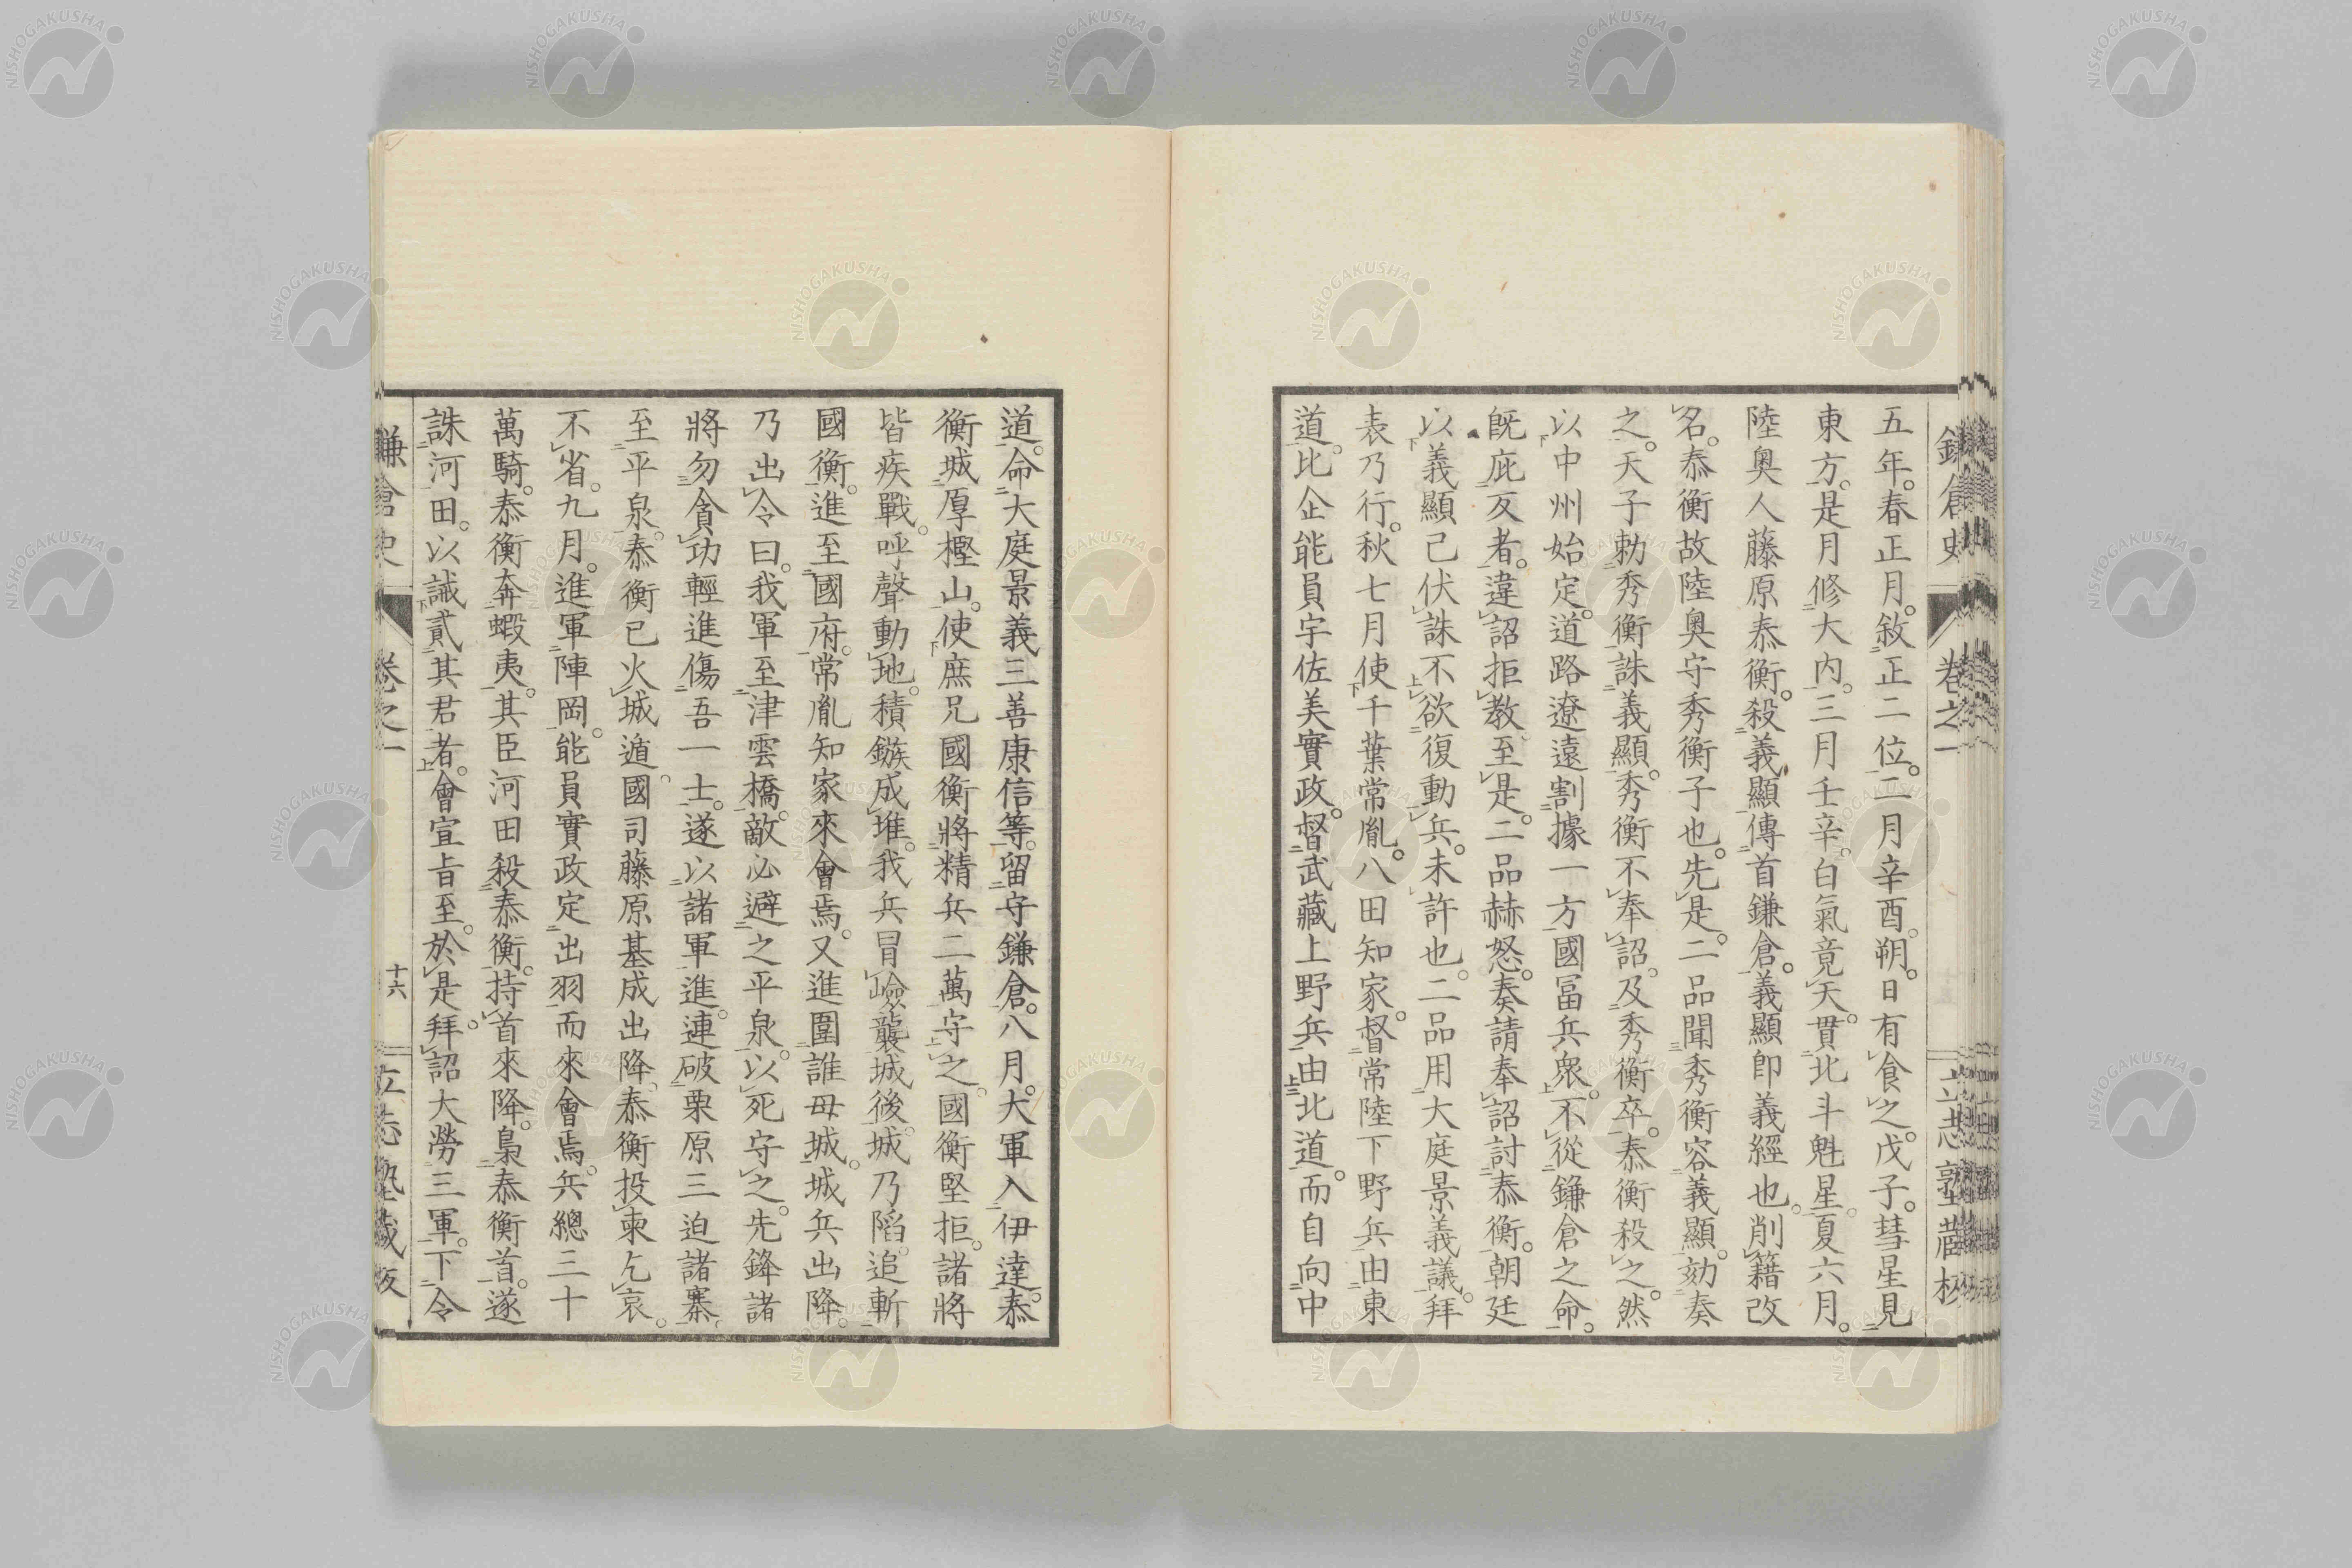 五年。春正月。敘正二位。二月辛酉。朔。日有食之。戊子。彗星見
東方。是月修大內。三月壬辛。白氣竟天。貫北斗魁星。夏六月。
陸奧人藤原泰衡。殺義顯傳首鎌倉。義顯卽義經也。削籍改
名。泰衡故陸奧守秀衡子也。先是。二品聞秀衡容義顯。効奏
之。天子勅秀衡誅義顯。秀衡不奉詔。及秀衡卒。泰衡殺之。然
以中州始定。道路遼遠割據一方國冨兵衆。不從鎌倉之命。
旣庇反者。違詔拒教至是。二品赫怒。奏請奉詔討泰衡。朝廷
以義顯已伏誅不欲復動兵。未許也。二品用大庭景義議。拜
表乃行。秋七月使千葉常胤。八田知家。督常陸下野兵由東
道。比企能員宇佐美實政。督武藏上野兵由北道。而自向中
道。命大庭景義三善康信等。留守鎌倉。八月。大軍入伊達。泰
衡城厚樫山。使庶兄國衡將精兵二萬守之。國衡堅拒。諸將
皆疾戰。呼聲動地。積鏃成堆。我兵冒嶮襲城後。城乃陷。追斬
國衡。進至國府。常胤知家來會焉。又進圍誰毋城。城兵出降。
乃出令曰。我軍至津雲橋。敵必避之平泉。以死守之。先鋒諸
將勿貪功輕進傷吾一士。遂以諸軍進。連破栗原三迫諸寨。
至平泉。泰衡已火城遁。國司藤原基成出降。泰衡投柬乞哀。
不省。九月。進軍陣岡。能員實政定出羽而來會焉。兵總三十
萬騎。泰衡奔蝦夷。其臣河田殺泰衡。持首來降。梟泰衡首。遂
誅河田。以誡貳其君者。會宣旨至。於是。拜詔大勞三軍。下令
鎌倉史
卷之一
十六
立志塾藏板
NISHOGAKUSHA